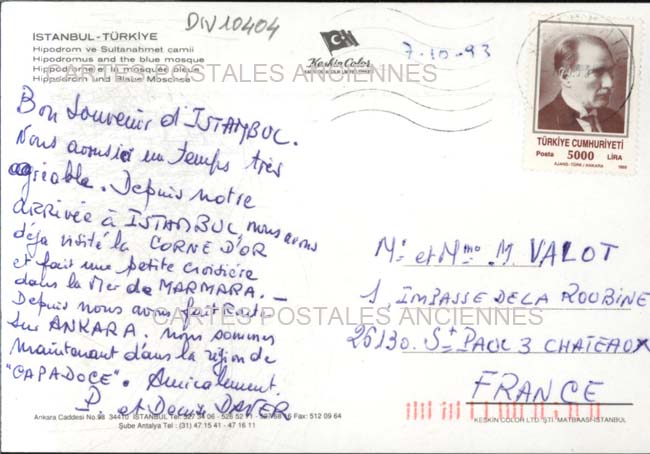 DIV10404
ISTANBUL-TÜRKİYE
Hipodrom ve Sultanahmet camii
Hipodromus and the blue mosque
Hippodrome et la mosquée bleue
Hippodrom und Blaue Moschee
Keskin Color
7-10-93
CARTES POSTALES ANCIENNES
TÜRKİYE CUMHURİYETİ
Posta 5000 LİRA
AJANS-TÜRK/ANKARA
Bon souvenir d'ISTAMBUL.
Nous avons ici un temps très
agréable. Depuis notre
arrivée à ISTAMBUL, nous avons
déja visité la CORNE D'OR
et fait une petite croisière
dans la Mer de MARMARA. -
Depuis nous avons fait route
sur ANKARA. nous sommes
maintenant dans la région de
"CAPADOCE". Amicalement.
P. et Denise DAVER
Mr et Mme M. VALOT
1, IMPASSE DE LA ROUBINE
26130. St PAUL 3 CHATEAUX
FRANCE
CARTES POSTALES ANCIENNES
Ankara Caddesi No.98 34410 ISTANBUL Tel: 527 34 06 - 526 52 11 - 527 68 16 Fax: 512 09 64
Şube Antalya Tel: (31) 47 15 41 - 47 16 11
KESKİN COLOR LTD. ŞTİ. MATBAASI-İSTANBUL